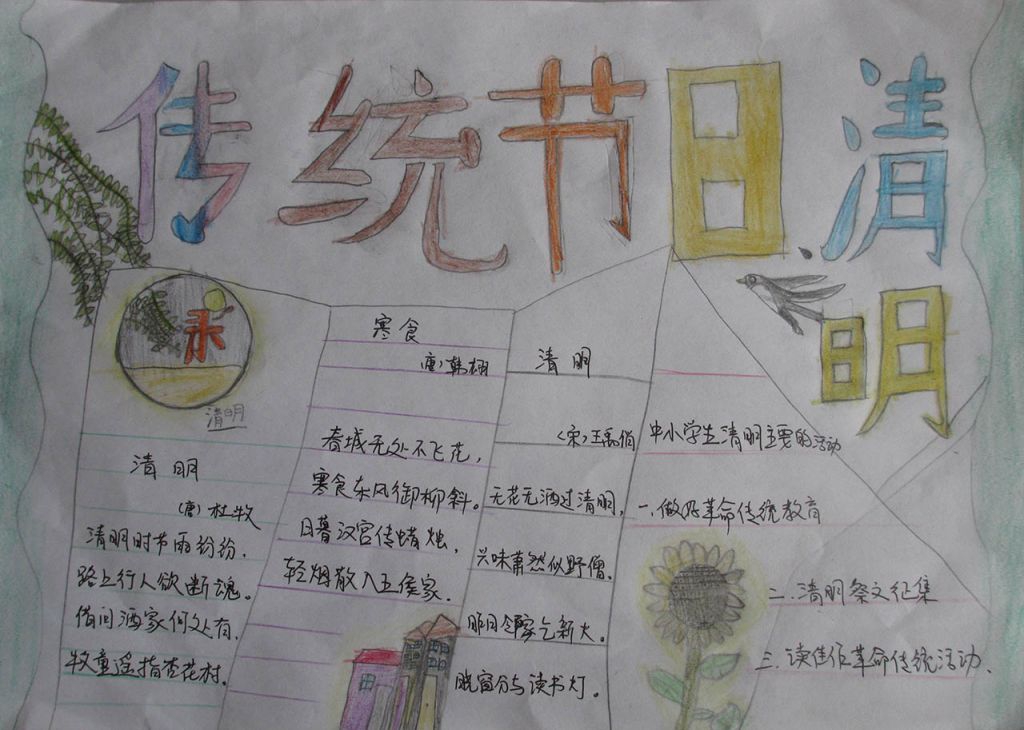 传统节日清
明
清明
清明
(唐)杜牧
清明时节雨纷纷.
路上行人欲断魂。
借问酒家何处有.
牧童遥指杏花村.
寒食
(唐)韩栩
春城无处不飞花,
寒食东风御柳斜。
日暮汉宫传烛.
轻烟散入五侯家.
清明
(宋)王禹偁
无花无酒过清明,
兴味萧然似野僧.
昨日邻家乞新火.
晓窗分与读书灯。
中小学生清明主要的活动
一.做好革命传统教育
二.清明祭文征集
三.读佳作革命传统活动、